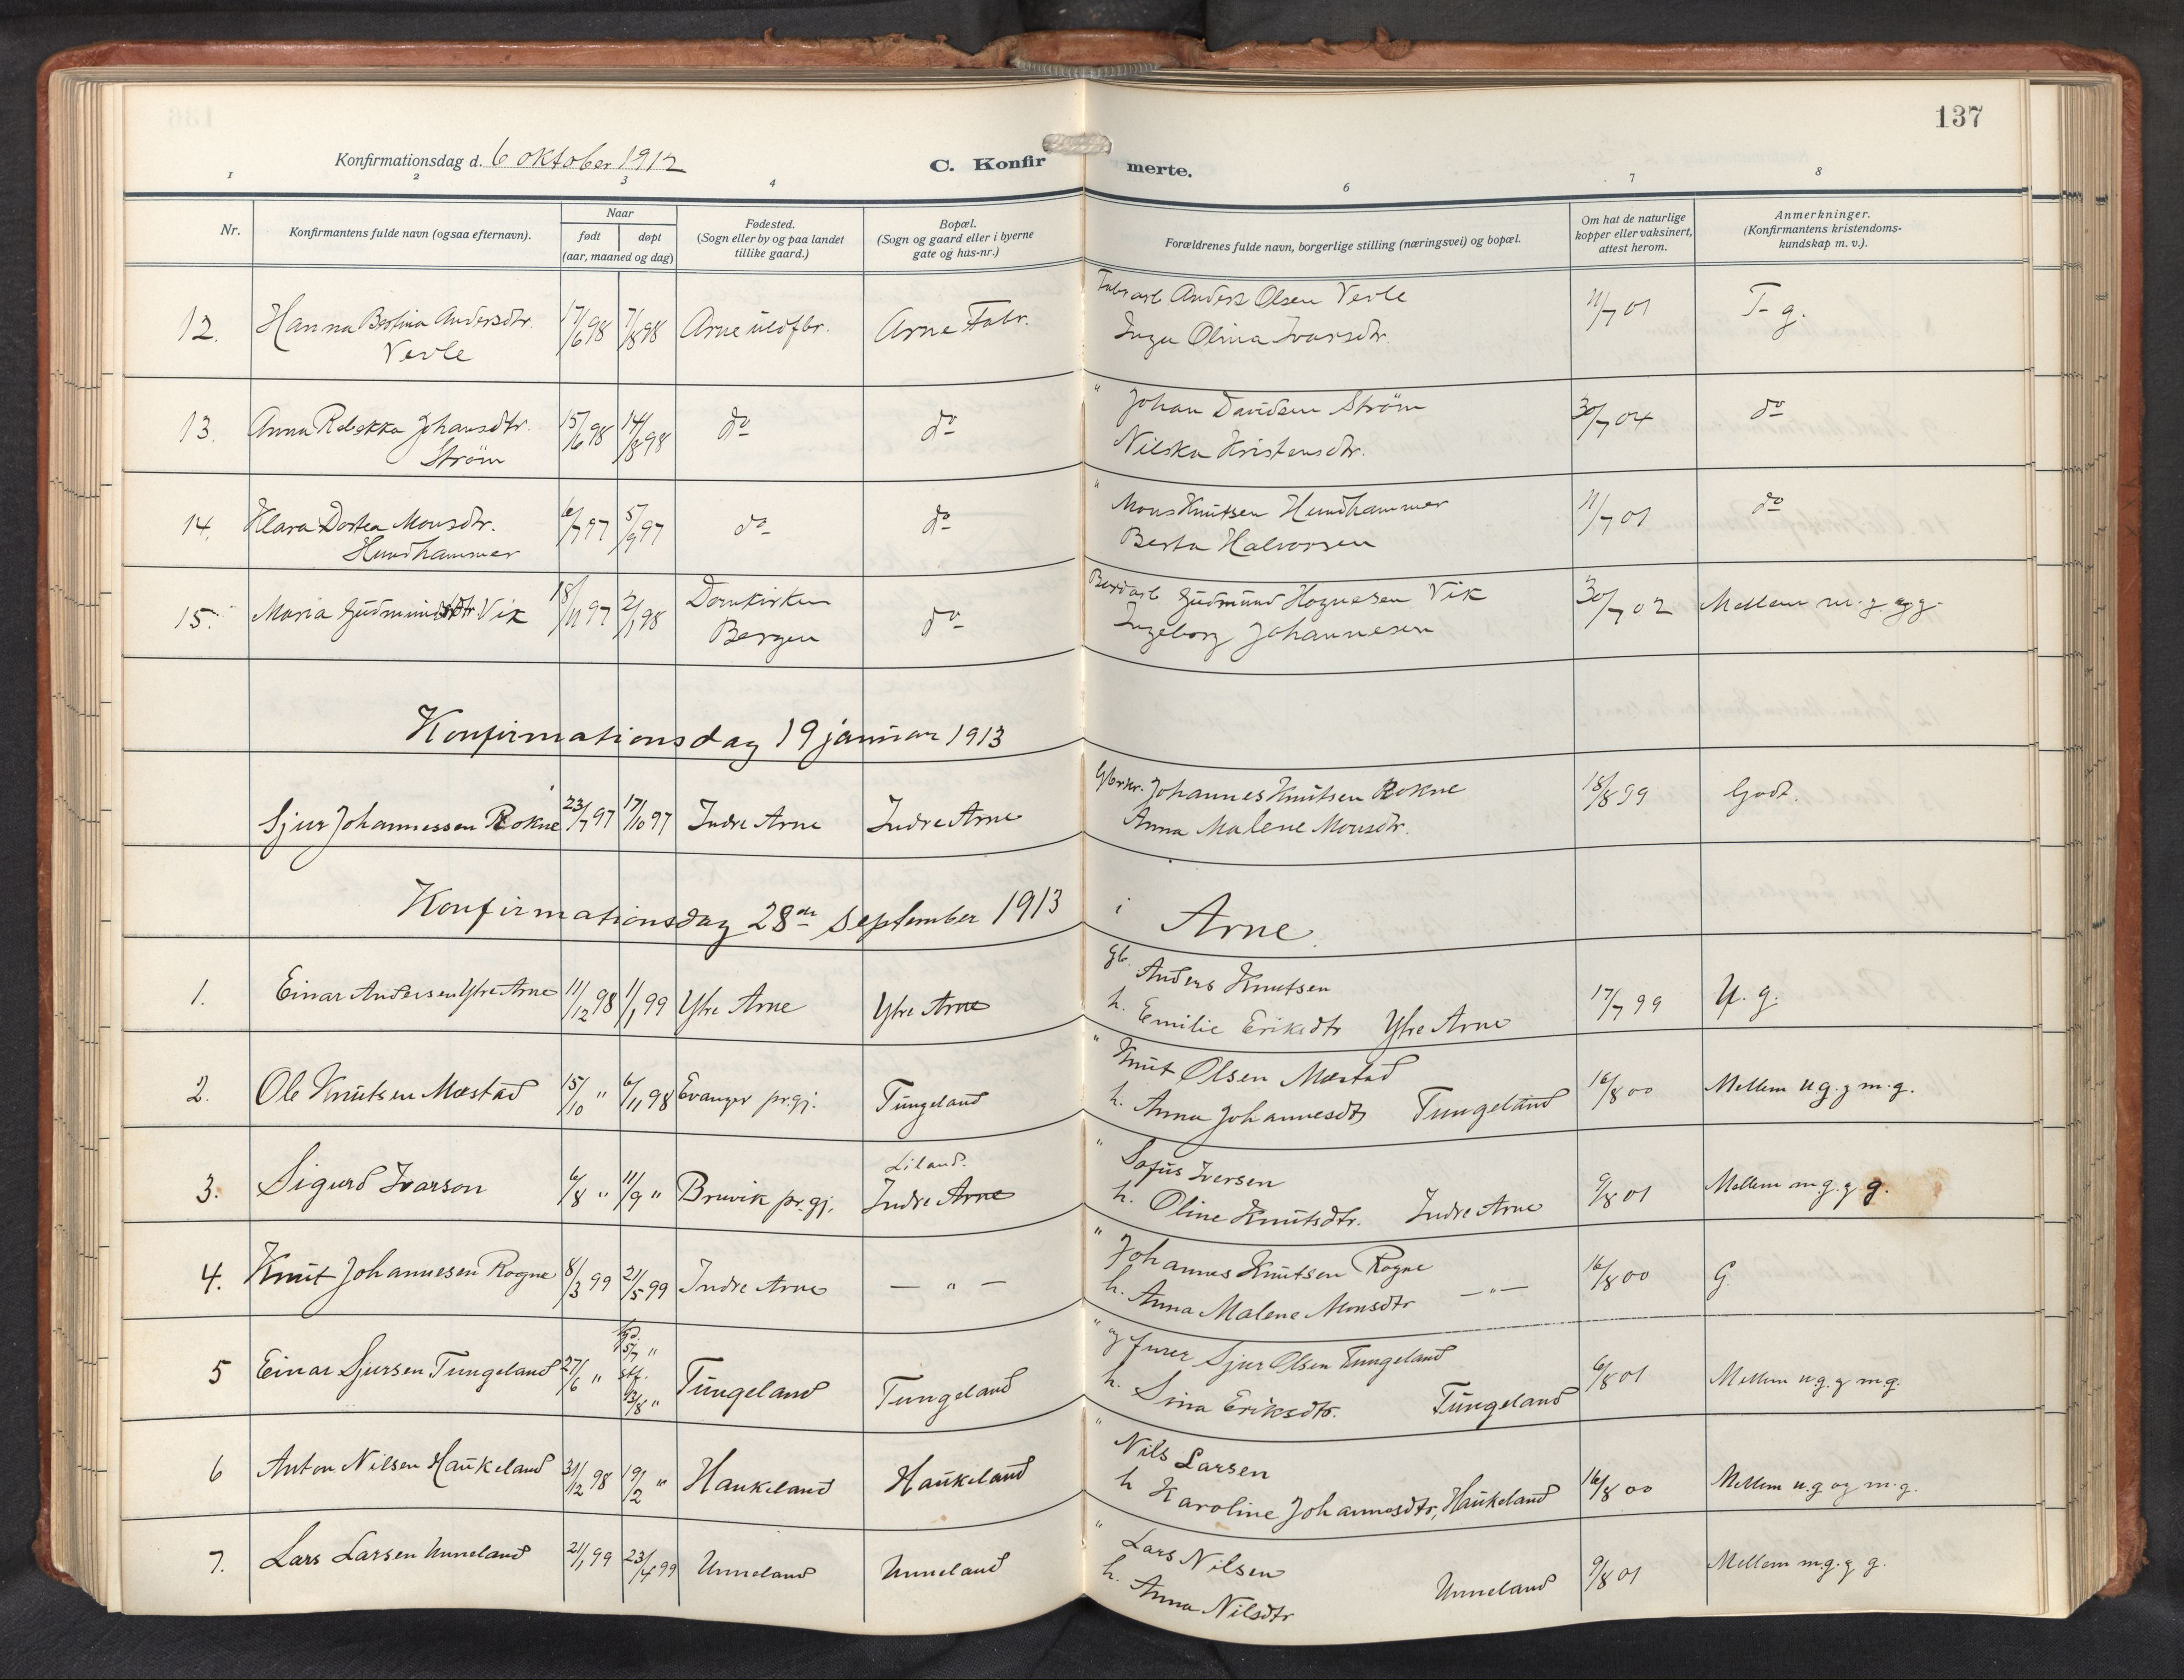 137
Konfirmationsdag d. 6 oktober 1912
C. Konfirmerte.
1 2 3 4 6 7 8
Nr.
Konfirmantens fulde navn (ogsaa efternavn).
Naar
født døpt
(aar, maaned og dag)
Fødested.
(Sogn eller by og paa landet
tillike gaard.)
Bopæl.
(Sogn og gaard eller i byerne
gate og hus-nr.)
Forældrenes fulde navn, borgerlige stilling (næringsvei) og bopæl.
Om hat de naturlige
kopper eller vaksinert,
attest herom.
Anmerkninger.
(Konfirmantens kristendoms-
kundskap m. v.).
12. Hanna Bertina Andersdtr. 17/6 98 7/8 98 Arne uldfbr. Arne Fabr. Fabrarb Anders Olsen Vevle 11/7 01 T- g.
Vevle Inga Olina Ivarsdtr.
13. Anna Rebekka Johansdtr. 15/6 98 14/8 98 do do " Johan Davidsen Strøm 30/7 04 do
Strøm Nilska Kristensdtr.
14. Klara Dortea Monsdtr. 6/7 97 5/9 97 do do " Mons Knutsen Hundhammer 11/7 01 do
Hundhammer Berta Halvorsen
15. Maria Gudmundsdtr Vik 18/11 97 2/1 98 Domkirken do Gudmund Hognesen Vik 30/7 02 Mellem m.g. og g.
Bergen Ingeborg Johannesen
Konfirmationsdag 19 januar 1913
Sjur Johannessen Rokne 23/7 97 17/10 97 Indre Arne Indre Arne Gbrkr. Johannes Knutsen Rokne 18/8 99 Godt.
Anna Malene Monsdtr.
Konfirmationsdag 28de september 1913 i Arne.
1. Einar Andersen Ytre Arne 11/12 98 1/1 99 Ytre Arne Ytre Arne Gb. Anders Knutsen 17/7 99 U. g.
h. Emilie Eriksdtr Ytre Arne
2. Ole Knutsen Mæstad 15/10 " 6/11 98 Evanger pr.gj. Tungeland " Knut Olsen Mæstad 16/8 00 Mellem u.g. g m.g.
h. Anna Johannesdtr Tungeland
3. Sigurd Ivarson 6/8 " 11/9 " Bruvik pr.gj. Liland. Indre Arne " Sofus Iversen 9/8 01 Mellem m.g. g g.
h. Oline Knutsdtr. Indre Arne
4. Knut Johannesen Rogne 8/3 99 21/5 99 Indre Arne — " — " Johannes Knutsen Rogne 16/8 00 G.
h. Anna Malene Monsdtr — " —
5 Einar Sjursen Tungeland 27/6 " 5/7 " stf. 13/8 " Tungeland Tungeland " og furer Sjur Olsen Tungeland 6/8 01 Mellem u.g. g m.g.
h. Sina Eriksdtr. Tungeland
6 Anton Nilsen Haukeland 31/12 98 19/2 " Haukeland Haukeland " Nils Larsen 16/8 00 Mellem u.g og m.g.
h Karoline Johannesdtr, Haukeland
7. Lars Larsen Unneland 21/1 99 23/4 99 Unneland Unneland " Lars Nilsen 9/8 01 Mellem m.g. g g.
h. Anna Nilsdtr Unneland